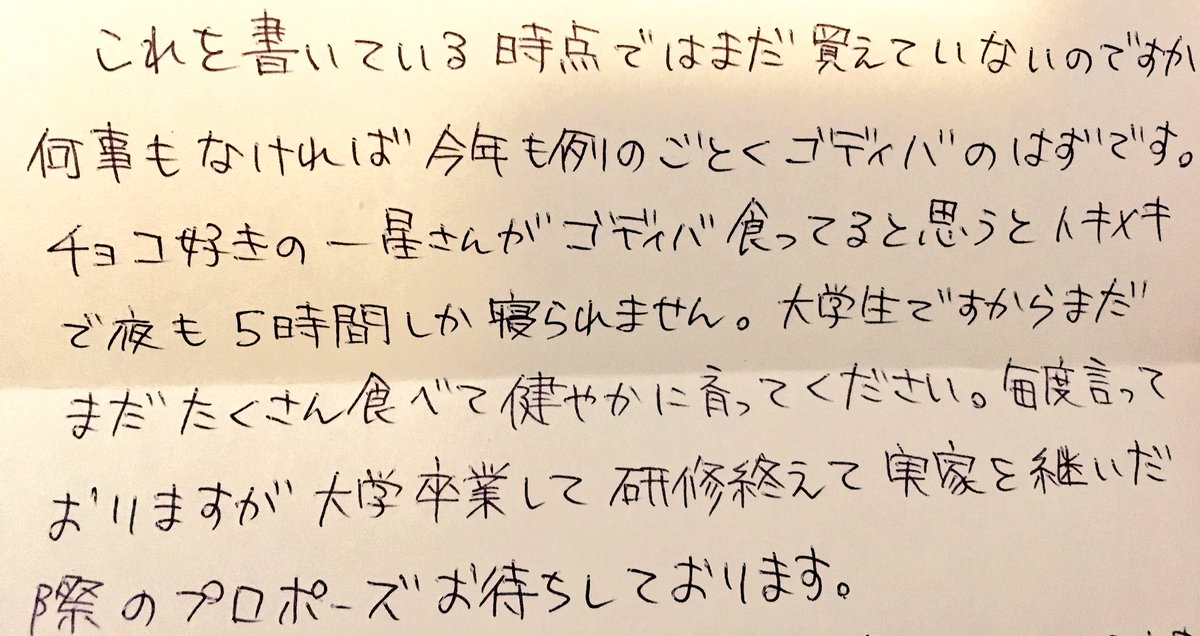 これを書いている時点ではまだ覚えていないのですが
何事もなければ今年も例のごとくゴディバのはずです。
チョコ好きの一星さんがゴディバ食ってると思うとトキメキ
で夜も5時間しか寝られません。大学生ですからまだ
まだたくさん食べて健やかに育ってください。毎度言って
おりますが大学卒業して研修終えて実家を継いだ
際のプロポーズお待ちしております。